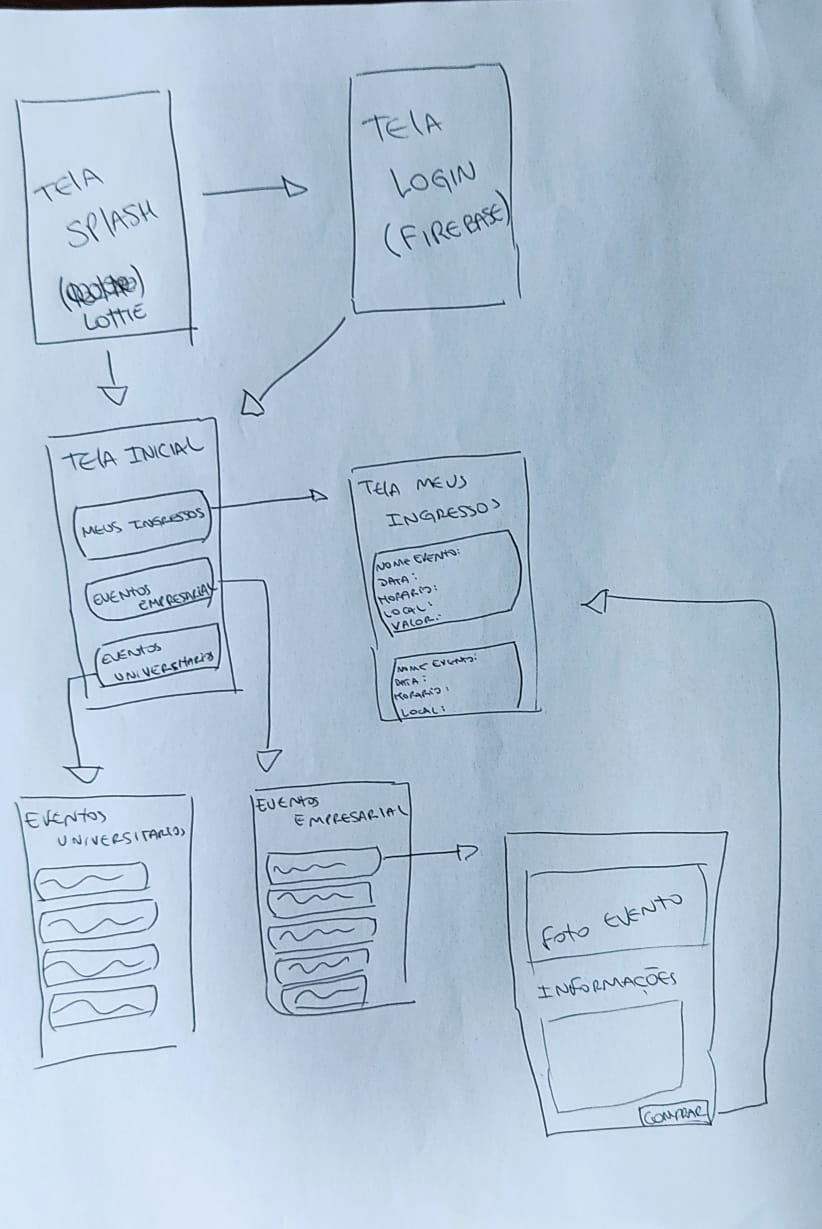 TELA
SPLASH
LOTTIE
TELA
LOGIN
(FIREBASE)
TELA INICIAL
MEUS INGRESSOS
EVENTOS
EMPRESARIAL
EVENTOS
UNIVERSITARIO
TELA MEUS
INGRESSOS
NOME EVENTO:
DATA:
HORARIO:
LOCAL:
VALOR:
NOME EVENTO:
DATA:
HORARIO:
LOCAL:
EVENTOS
UNIVERSITARIOS
EVENTOS
EMPRESARIAL
FOTO EVENTO
INFORMAÇÕES
COMPRAR